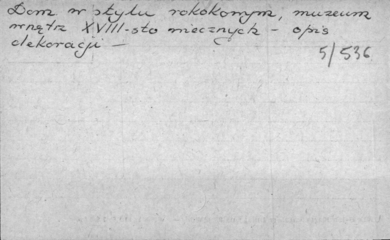 Dom w stylu rokokowym, muzeum
wnętrz XVIII-sto wiecznych - opis
dekoracji -
5/536